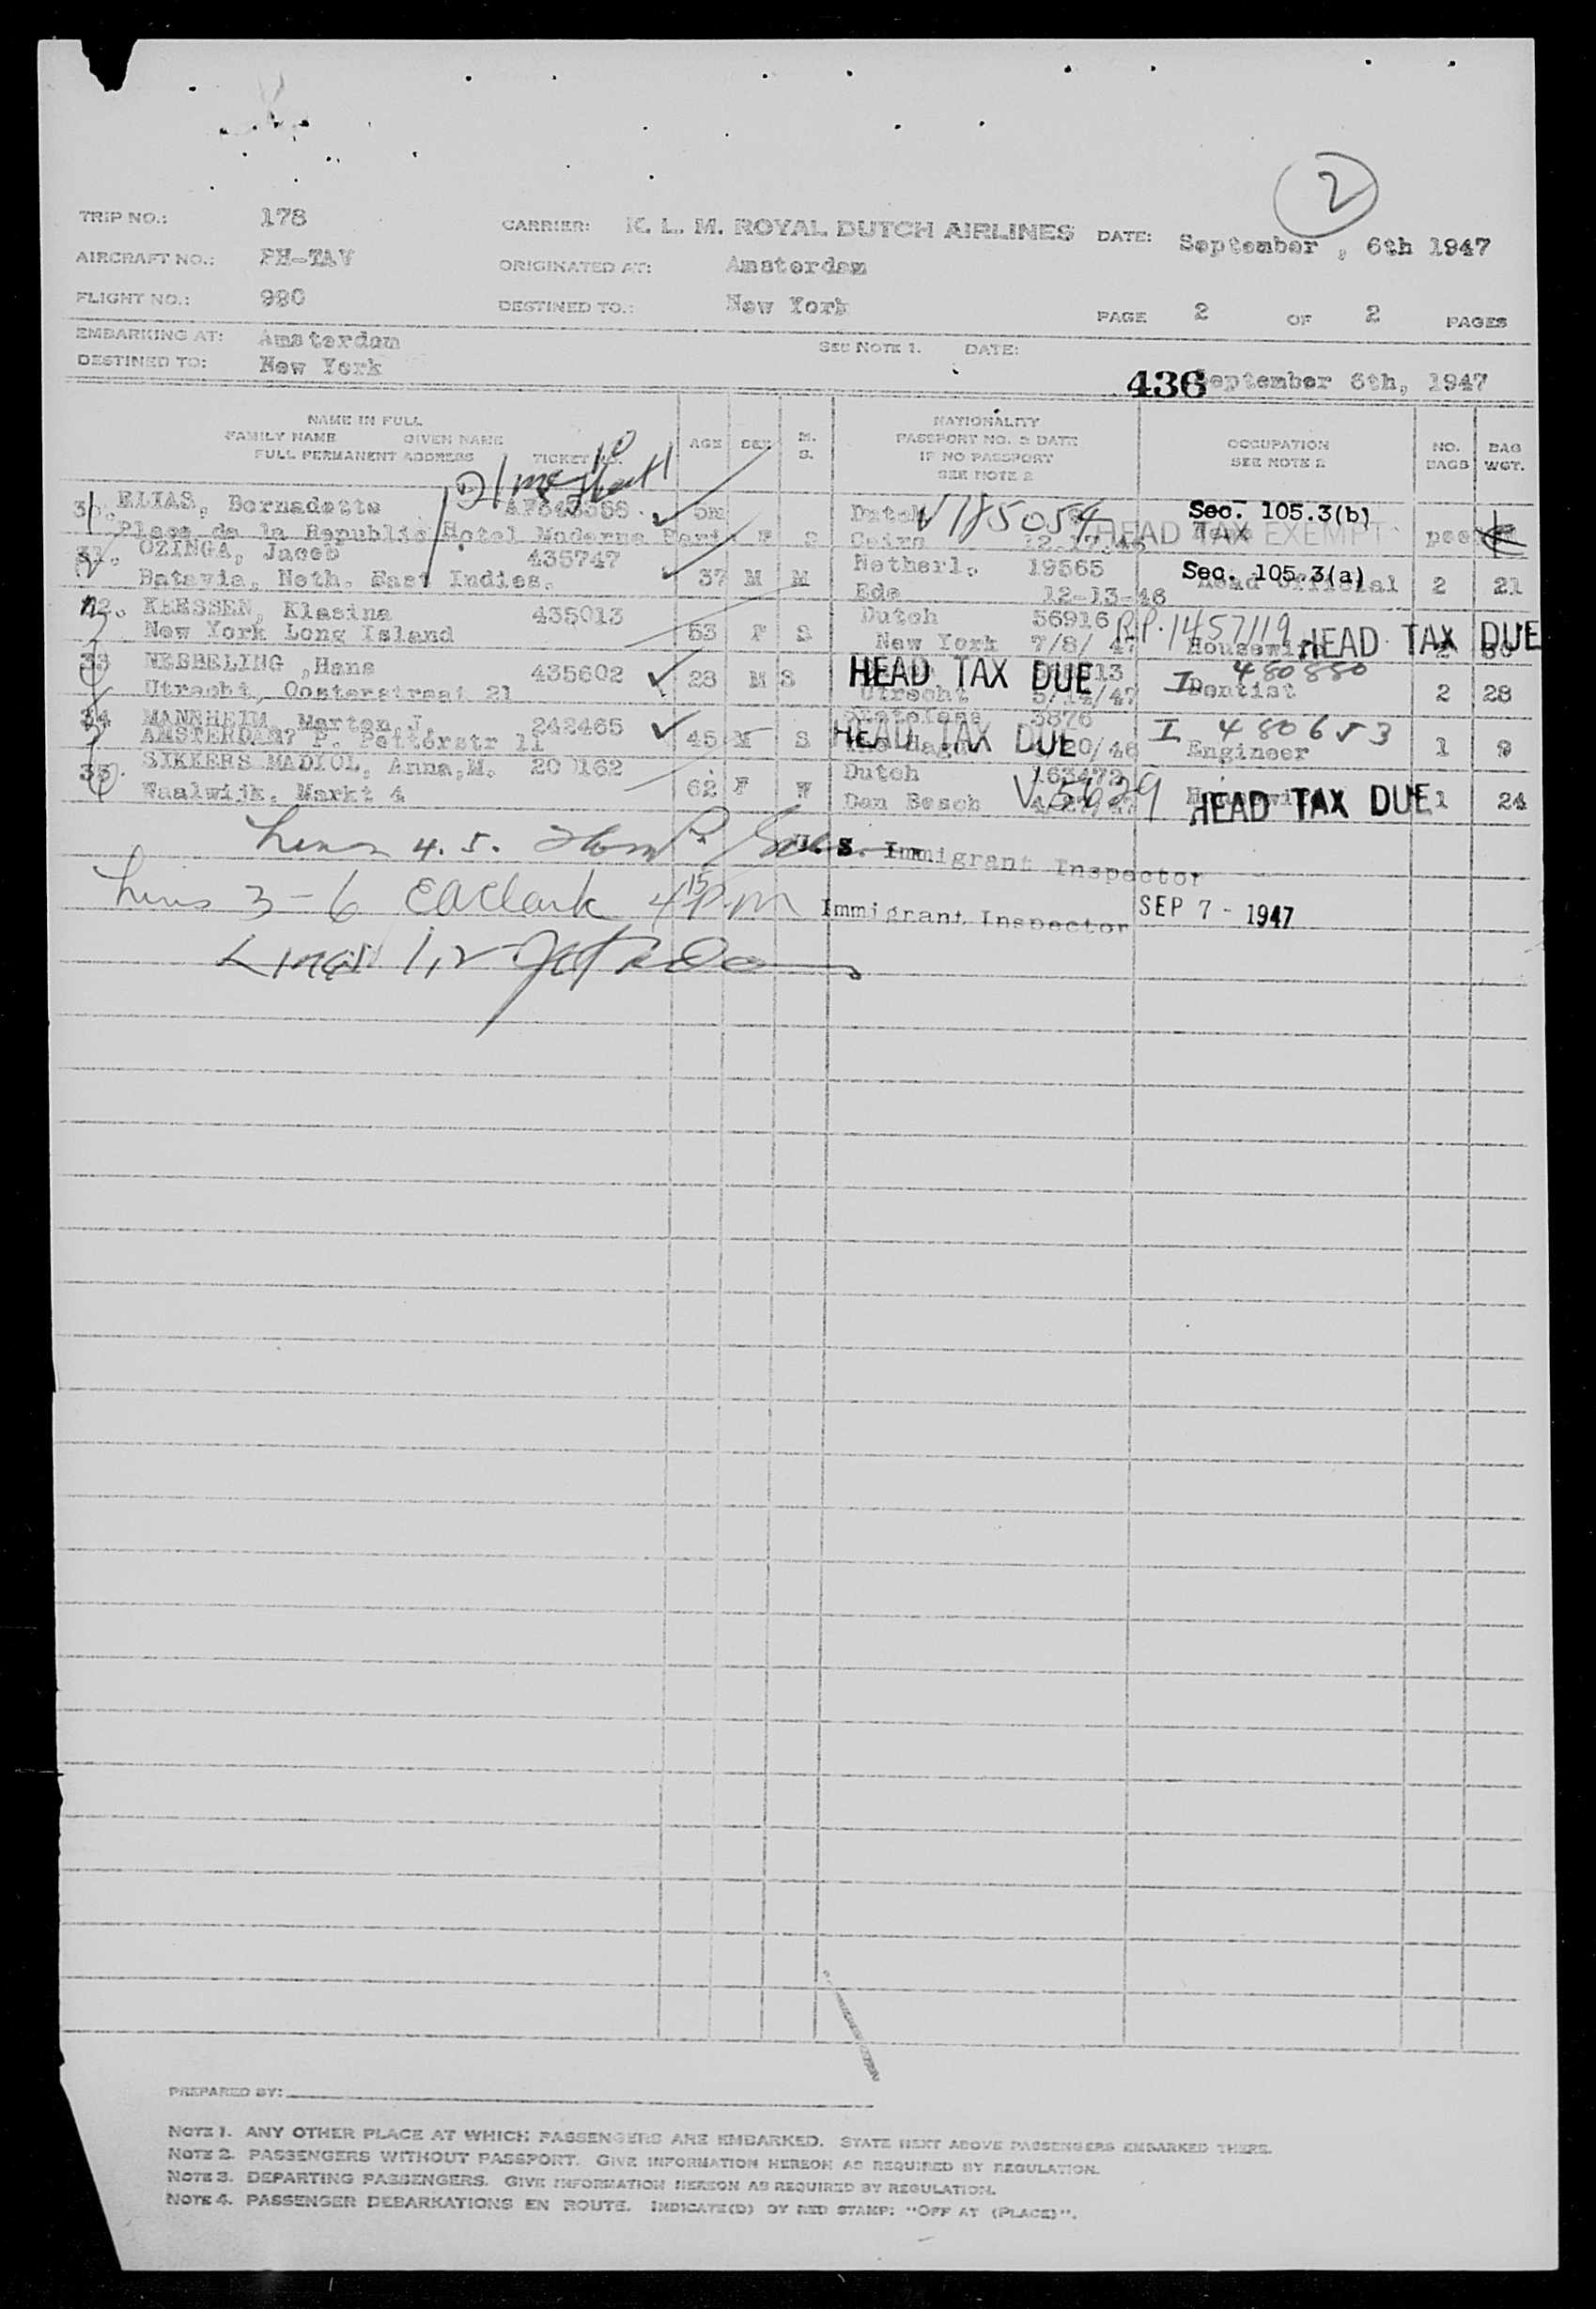 2
TRIP NO.: 178 CARRIER: K. L. M. ROYAL DUTCH AIRLINES DATE: September , 6th 1947
AIRCRAFT NO.: PH-TAV ORIGINATED AT: Amsterdam
FLIGHT NO.: 980 DESTINED TO.: New York PAGE 2 OF 2 PAGES
EMBARKING AT: Amsterdam SEE NOTE 1. DATE:
DESTINED TO: New York 436 September 6th, 1947
NAME IN FULL
FAMILY NAME GIVEN NAME
FULL PERMANENT ADDRESS TICKET NO.
AGE SEX M. S.
NATIONALITY
PASSPORT NO. & DATE
IF NO PASSPORT
SEE NOTE 2
OCCUPATION
SEE NOTE 2
NO. BAGS
BAG WGT.
30. ELIAS, Bernadette 5m Dutch V185054 Sec. 105.3(b)
Place de la Republic Hotel Moderne F S Cairo 12.17.46 HEAD TAX EXEMPT
31. OZINGA, Jacob 435747 Netherl. 19565 Sec. 105.3(a)
Batavia, Neth. East Indies. 37 M M Ede 12-13-46 Head Official 2 21
32. KEESSEN, Klasina 435013 Dutch 56916 1457119
New York Long Island 53 F S New York 7/8/ 47 Housewife HEAD TAX DUE
33 NESBELING ,Hans 435602 28 M S HEAD TAX DUE 13 I 480880
Utrecht, Oosterstraat 21 Utrecht /47 Dentist 2 28
34 MANNHEIM, Marten J. 242465 Stateless 3876 I 480653
AMSTERDAM? P. Potterstr 11 45 M S HEAD TAX DUE 20/46 Engineer 1 9
35. SIKKERS MADIOL, Anna,M. 162 Dutch 163472
Waalwijk, Markt 4 62 F W Den Bosch HEAD TAX DUE 1 24
Lines 4. 5. U. S. Immigrant Inspector
Lines 3-6 EAClark 4 15 P.M Immigrant Inspector SEP 7 - 1947
Lines 1,2
PREPARED BY:
NOTE 1. ANY OTHER PLACE AT WHICH PASSENGERS ARE EMBARKED. STATE NEXT ABOVE PASSENGERS EMBARKED THERE.
NOTE 2. PASSENGERS WITHOUT PASSPORT. GIVE INFORMATION HEREON AS REQUIRED BY REGULATION.
NOTE 3. DEPARTING PASSENGERS. GIVE INFORMATION HEREON AS REQUIRED BY REGULATION.
NOTE 4. PASSENGER DEBARKATIONS EN ROUTE. INDICATE(D) BY RED STAMP: "OFF AT (PLACE)".